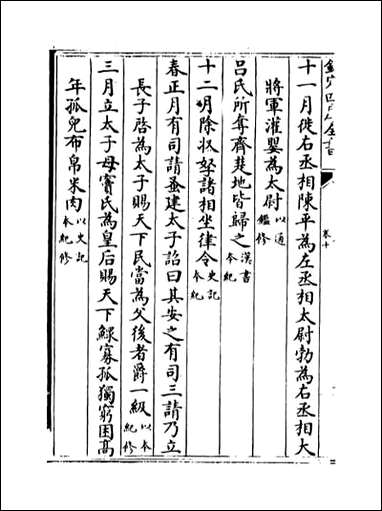 十一月徙右丞相陳平為左丞相太尉勃為右丞相大
將軍灌嬰為太尉以通鑑修
呂氏所奪齊楚地皆歸之漢書本紀
十二月除收孥諸相坐律令史記本紀
春正月有司請蚤建太子詔曰其安之有司三請乃立
長子啓為太子賜天下民當為父後者爵一級以本紀修
三月立太子母竇氏為皇后賜天下鰥寡孤獨窮困高
年孤兒布帛米肉以史記本紀修
卷十